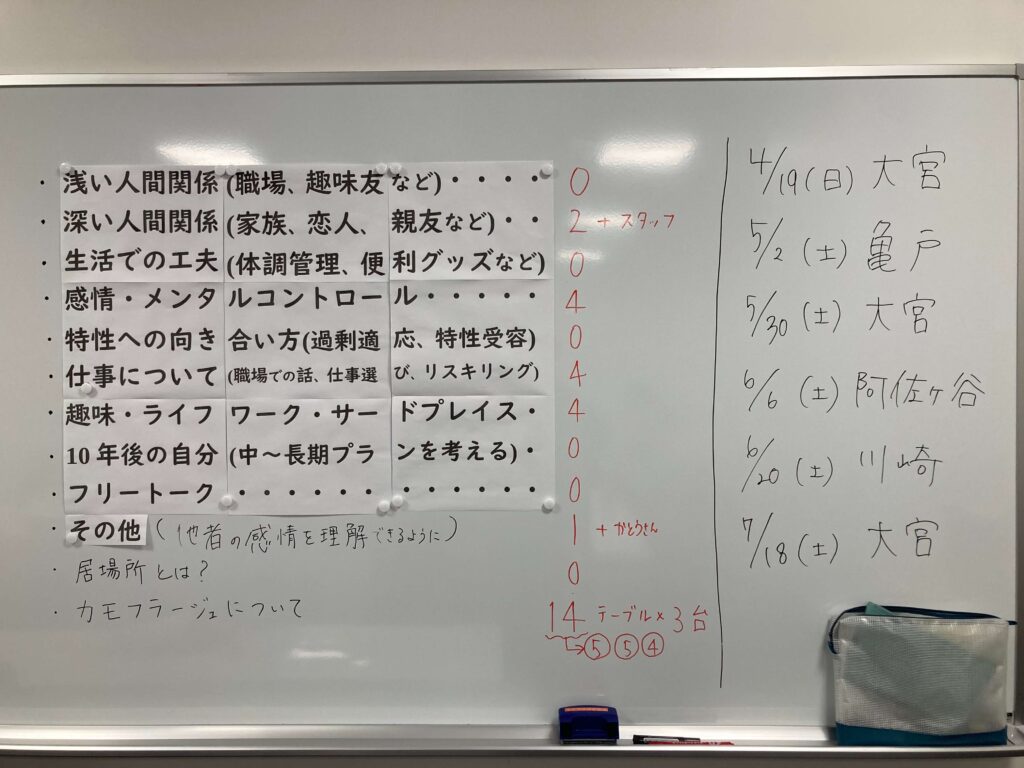 ・浅い人間関係(職場、趣味友など)・・・・ 0
・深い人間関係(家族、恋人、親友など)・・ 2 +スタッフ
・生活での工夫(体調管理、便利グッズなど) 0
・感情・メンタルコントロール・・・・・ 4
・特性への向き合い方(過剰適応、特性受容) 0
・仕事について(職場での話、仕事選び、リスキリング) 4
・趣味・ライフワーク・サードプレイス・ 4
・10年後の自分(中～長期プランを考える)・ 0
・フリートーク・・・・・・・・・・・・ 0
・その他(他者の感情を理解できるように) 1 +かとうさん
・居場所とは? 0
・カモフラージュについて
14 テーブル×3台
→⑤⑤④
4/19(日) 大宮
5/2(土) 亀戸
5/30(土) 大宮
6/6(土) 阿佐ヶ谷
6/20(土) 川崎
7/18(土) 大宮